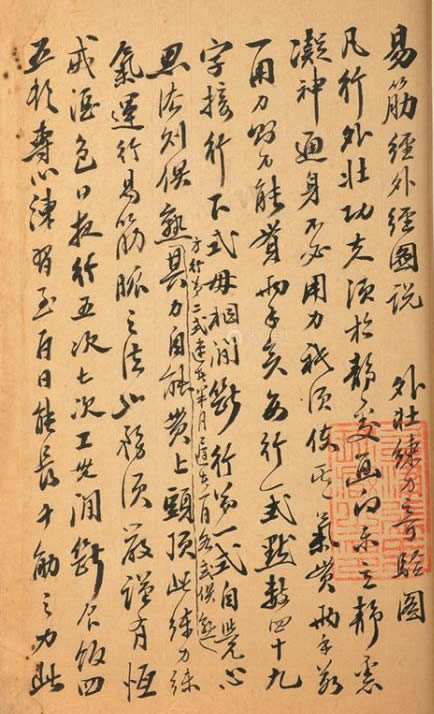 易筋經外經圖說　外壯練力奇驗圖
凡行外壯功夫須於靜處面向東立靜慮
凝神通身不必用力祇須使其氣貫兩手若
一用力能貫兩手矣每行一式默數四十九
字接行下式毋相間斷行第一式自覺心
思法則俱熟其力自能貫上頭頂此練力練
方行第二式速者半月遲者一月各式俱熟
氣運行易筋脈之法也務須嚴謹有恆
戒酒色日夜行五次七次工無間斷食飯四
五頓專心練習至百日能長千觔之力此